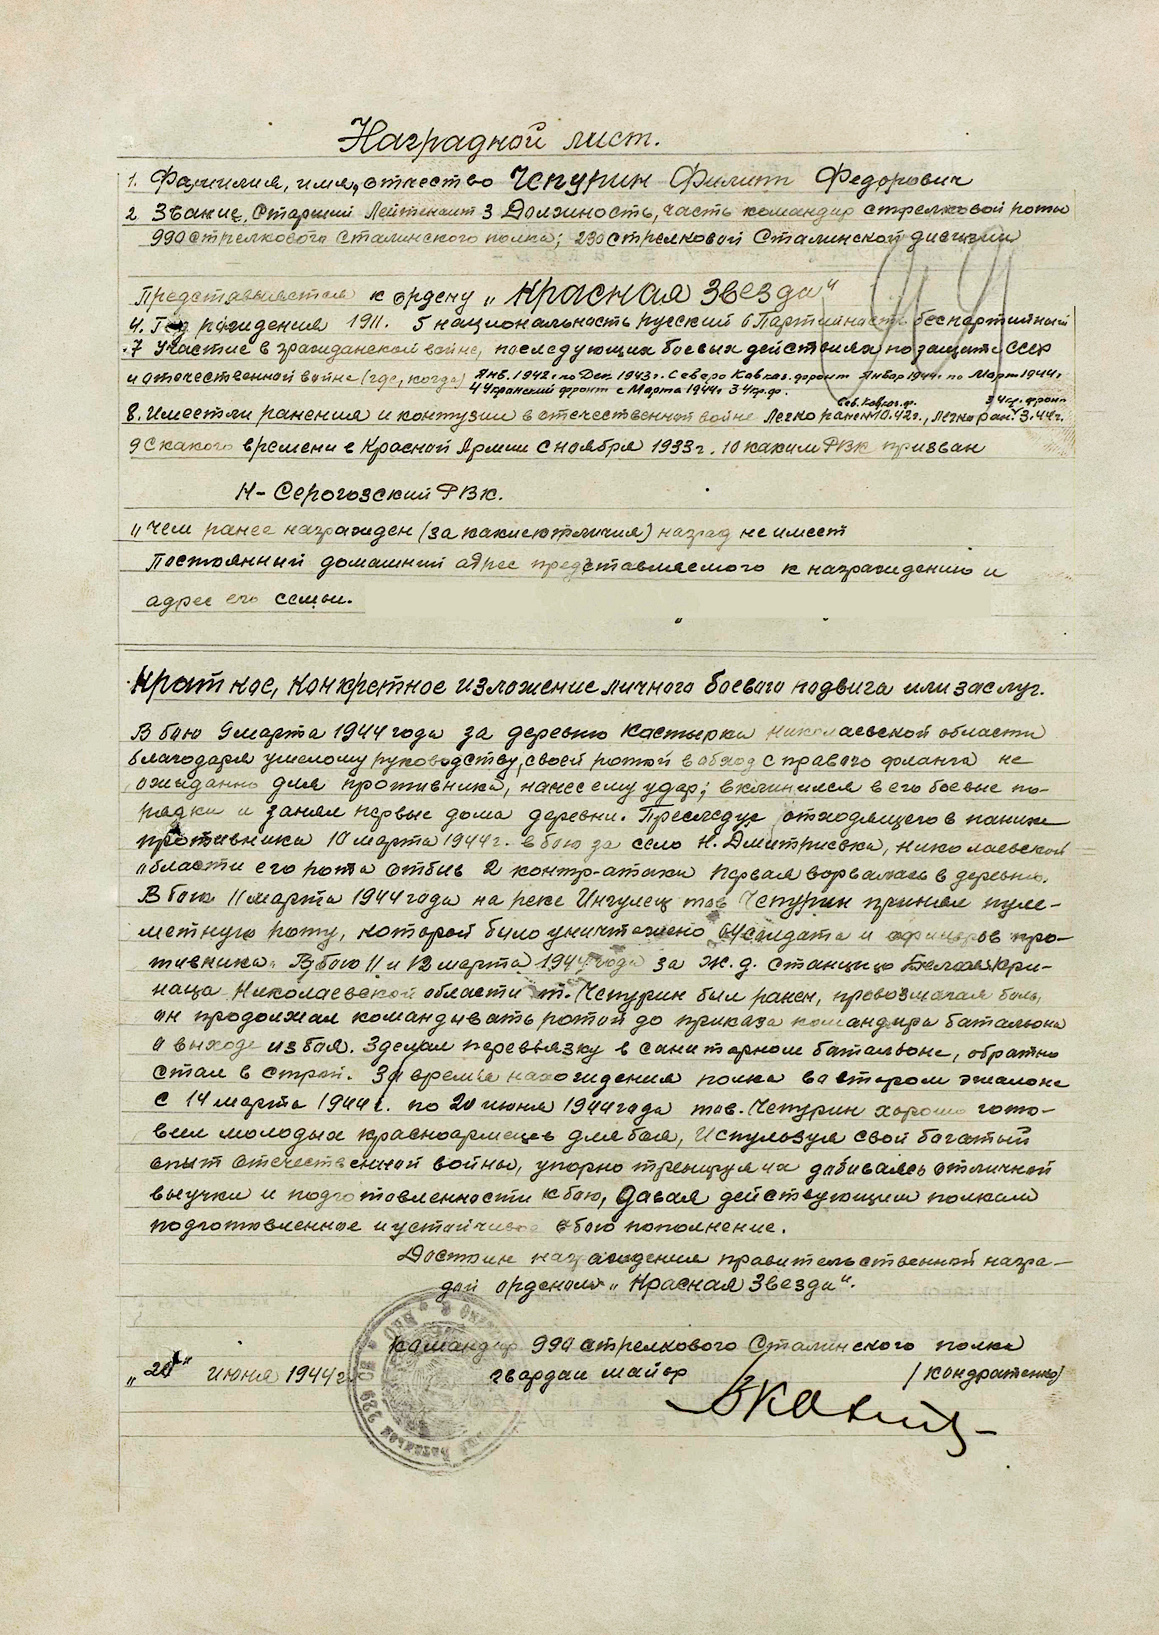 Наградной лист.
1. Фамилия, имя, отчество Чепурин Филипп Федорович
2 Звание, Старший Лейтенант 3 Должность, часть командир стрелковой роты
990 стрелкового Сталинского полка; 230 стрелковой Сталинской дивизии
Представляется к ордену „Красная Звезда“
4. Год рождения 1911. 5 национальность русский 6 Партийность беспартийный
7 Участие в гражданской войне, последующих боевых действиях по защите СССР
и отечественной войне (где, когда) Янв. 1942г. по Дек. 1943г. Северо Кавказ. фронт Январ 1944г. по Март 1944г.
4 Украинский фронт с Марта 1944г 3 Укр. фр.
Сев. Кавказ. ф. 3 Укр. фронт
8. Имеет ли ранения и контузии в отечественной войне Легко ранен 10.42г., Легко ран. 3.44г.
9 С какого времени в Красной Армии с ноября 1933г. 10 каким РВК призван
Н-Серогозский РВК.
11 Чем ранее награжден (за какие отличия) наград не имеет
Постоянный домашний адрес представляемого к награждению и
адрес его семьи.
Краткое, конкретное изложение личного боевого подвига или заслуг.
В бою 9 марта 1944 года за деревню Костырка Николаевской области
благодаря умелому руководству, своей ротой в обход с правого фланга не
ожиданно для противника, нанес ему удар; вклинился в его боевые по-
рядки и занял первые дома деревни. Преследуя отходящего в панике
противника 10 марта 1944г. в бою за село Н. Дмитриевка, Николаевской
области его рота отбив 2 контр-атаки первая ворвалась в деревню.
В бою 11 марта 1944 года на реке Ингулец тов Чепурин принял пуле-
метную роту, которой было уничтожено солдата и офицеров про-
тивника. В бою 11 и 12 марта 1944 года за ж. д. станцию Белая Кри-
ница Николаевской области т. Чепурин был ранен, превозмагая боль,
он продолжал командывать ротой до приказа командира баталиона
о выходе из боя. Зделал перевязку в санитарном батальоне, обратно
стал в строй. За время нахождения полка во втором эшалоне
с 14 марта 1944г. по 20 июня 1944 года тов. Чепурин хорошо гото-
вил молодых красноармейцев для боя, Используя свой богатый
опыт отечественной войны, упорно тренируя на добиваясь отличной
выучки и подготовленности к бою, Давая действующим полкам
подготовленное и устойчивое в бою пополнение.
Достоин награждения правительственной награ-
дой орденом „Красная Звезда“.
Командир 990 стрелкового Сталинского полка
„20“ июня 1944г. гвардии майор /Кондратенко/